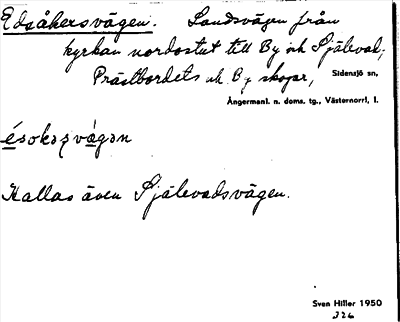 Edsåkersvägen. Landsvägen från
kyrkan nordostut till By och Själevad;
Prästbordets och By skogar, Sidensjö sn,
Ångermanl. n. doms. tg., Västernorrl, l.
Kallas även Själevadsvägen.
Sven Hiller 1950
326